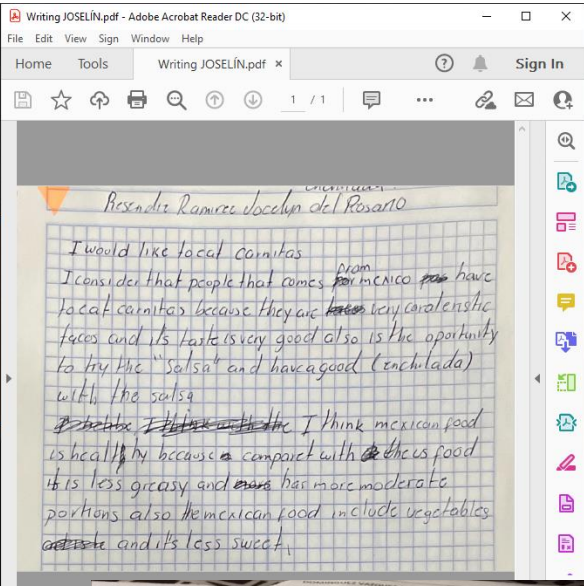 Writing JOSELÍN.pdf - Adobe Acrobat Reader DC (32-bit)
File Edit View Sign Window Help
Home Tools Writing JOSELÍN.pdf × Sign In
1 / 1
Resendiz Ramirez Jocelyn del Rosario
I would like to eat carnitas
I consider that people that comes from mexico have
to eat carnitas because they are very caracteristic
tacos and it's taste is very good also is the oportunity
to try the "salsa" and have a good (enchilada)
with the salsa
I think mexican food
is healthy because comparet with the us food
it is less greasy and has more moderate
portions also the mexican food include vegetables
and it's less sweet.